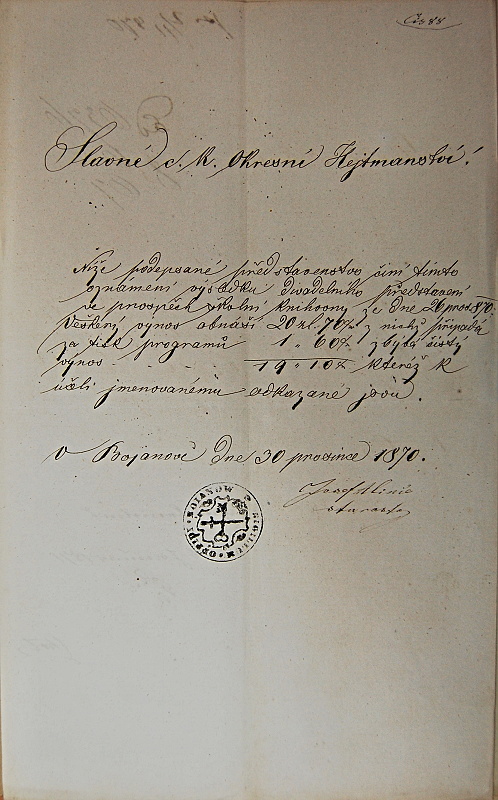 Čís 88
Slavné c. k. Okresní Hejtmanství!
Níže podepsané představenstvo činí tímto
oznámení výsledku divadelního představení
ve prospěch školní knihovny ze dne 26 pros. 870.
Veškerý výnos obnáší 20 zl. 70 k z nichž připadá
za tisk programů 1 " 60 k zbývá čistý
výnos - - - 19 " 10 k kteréž k
účeli jmenovanému odkázané jsou.
V Bojanově dne 30 prosince 1870.
Josef
starosta
SIGILLUM OPPIDI BOIANOW